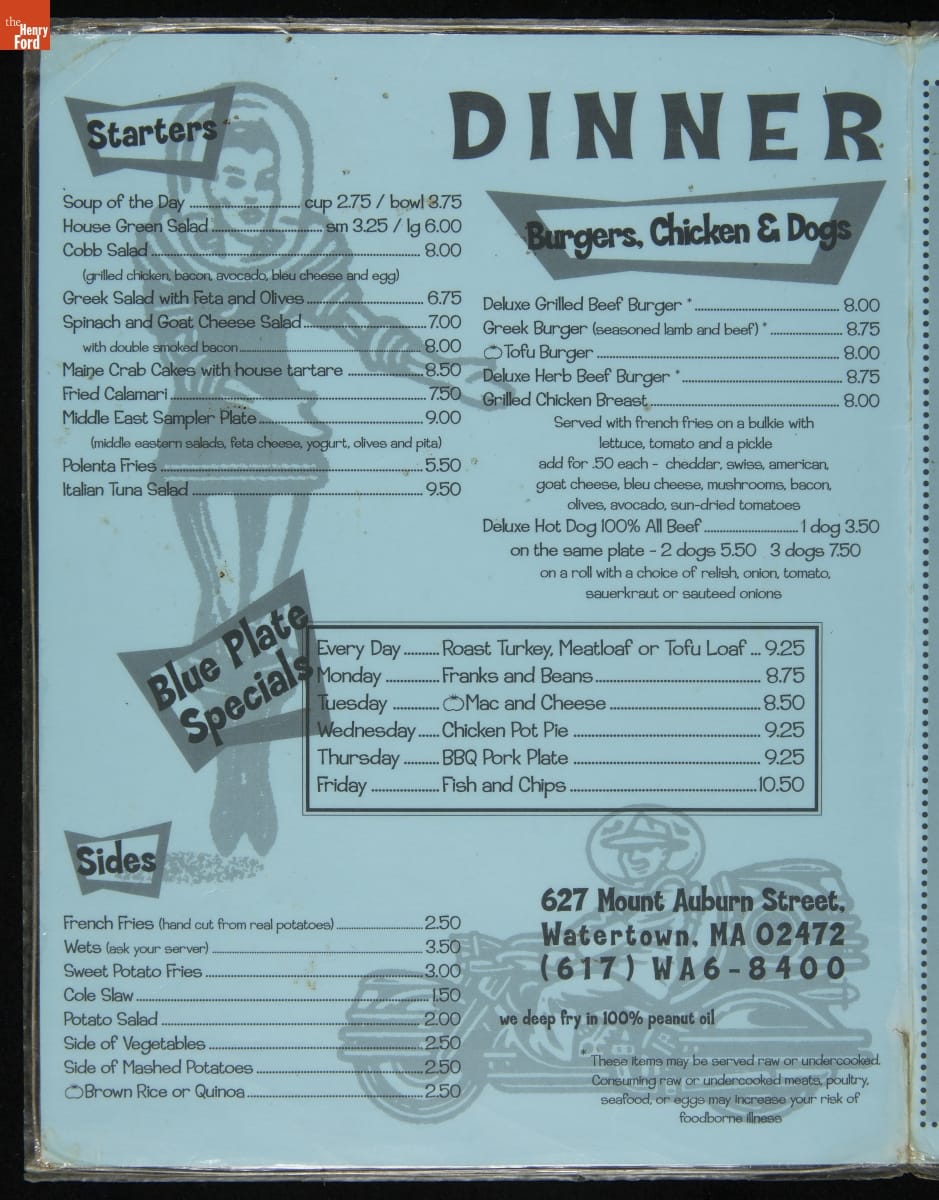 the
Henry
Ford
DINNER
Starters
Soup of the Day ........ cup 2.75 / bowl 3.75
House Green Salad ........ sm 3.25 / lg 6.00
Cobb Salad ........ 8.00
(grilled chicken, bacon, avocado, bleu cheese and egg)
Greek Salad with Feta and Olives ........ 6.75
Spinach and Goat Cheese Salad ........ 7.00
with double smoked bacon ........ 8.00
Maine Crab Cakes with house tartare ........ 8.50
Fried Calamari ........ 7.50
Middle East Sampler Plate ........ 9.00
(middle eastern salads, feta cheese, yogurt, olives and pita)
Polenta Fries ........ 5.50
Italian Tuna Salad ........ 9.50
Burgers, Chicken & Dogs
Deluxe Grilled Beef Burger * ........ 8.00
Greek Burger (seasoned lamb and beef) * ........ 8.75
Tofu Burger ........ 8.00
Deluxe Herb Beef Burger * ........ 8.75
Grilled Chicken Breast ........ 8.00
Served with french fries on a bulkie with
lettuce, tomato and a pickle
add for .50 each - cheddar, swiss, american,
goat cheese, bleu cheese, mushrooms, bacon,
olives, avocado, sun-dried tomatoes
Deluxe Hot Dog 100% All Beef ........ 1 dog 3.50
on the same plate - 2 dogs 5.50 3 dogs 7.50
on a roll with a choice of relish, onion, tomato,
sauerkraut or sauteed onions
Blue Plate
Specials
Every Day ........ Roast Turkey, Meatloaf or Tofu Loaf ... 9.25
Monday ........ Franks and Beans ........ 8.75
Tuesday ........ Mac and Cheese ........ 8.50
Wednesday ........ Chicken Pot Pie ........ 9.25
Thursday ........ BBQ Pork Plate ........ 9.25
Friday ........ Fish and Chips ........ 10.50
Sides
French Fries (hand cut from real potatoes) ........ 2.50
Wets (ask your server) ........ 3.50
Sweet Potato Fries ........ 3.00
Cole Slaw ........ 1.50
Potato Salad ........ 2.00
Side of Vegetables ........ 2.50
Side of Mashed Potatoes ........ 2.50
Brown Rice or Quinoa ........ 2.50
627 Mount Auburn Street,
Watertown, MA 02472
(617) WA6-8400
we deep fry in 100% peanut oil
* These items may be served raw or undercooked.
Consuming raw or undercooked meats, poultry,
seafood, or eggs may increase your risk of
foodborne illness